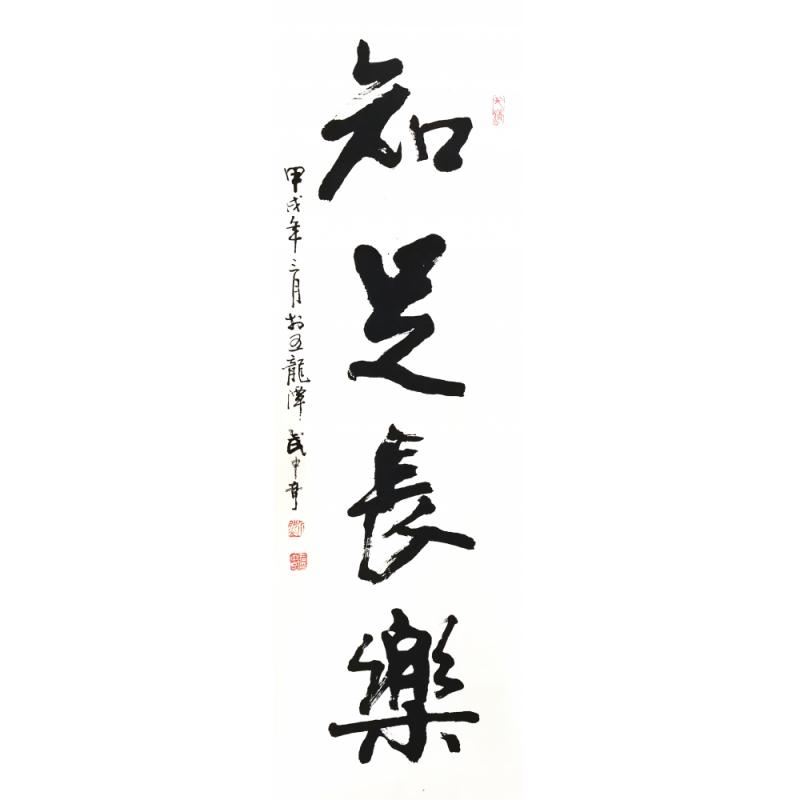 知足長樂
甲戌年三月於五龍潭 武中奇